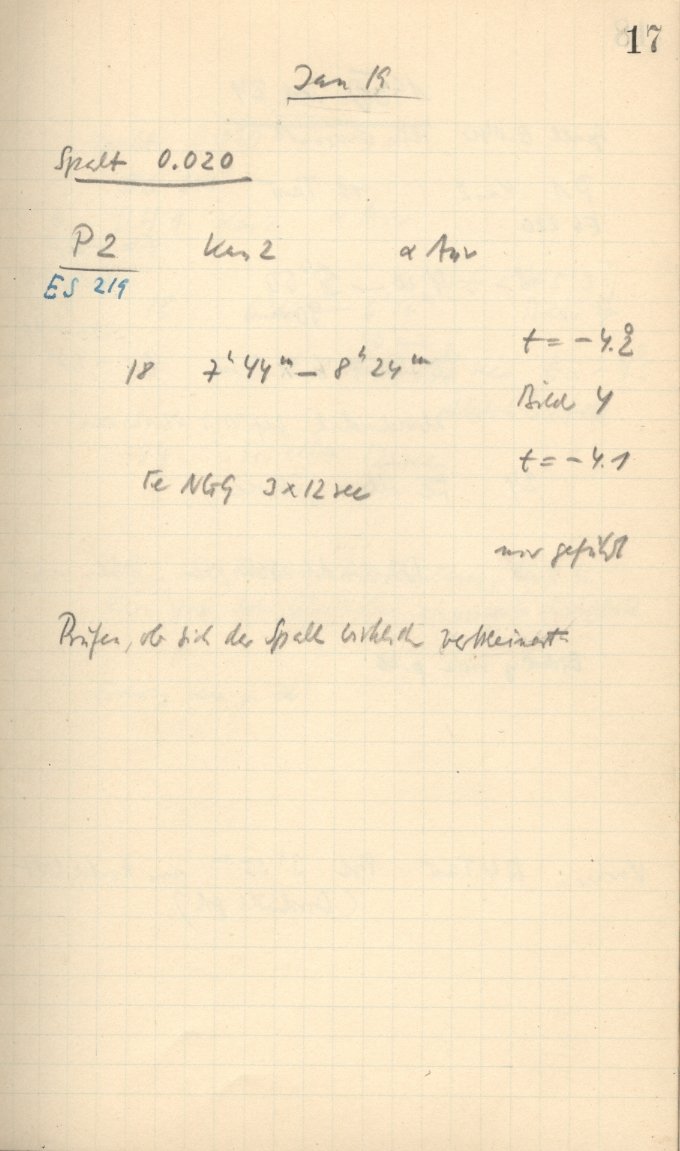 17
Jan 19
Spalt 0.020
P2 Kam 2 α Aur
ES 219
t = -4.°2
18 7ʰ 44ᵐ – 8ʰ 24ᵐ
Bild 4
t = -4.1
Fe NGG 3 x 12 sec
nur geführt
Prüfen, ob sich der Spalt wirklich verkleinert